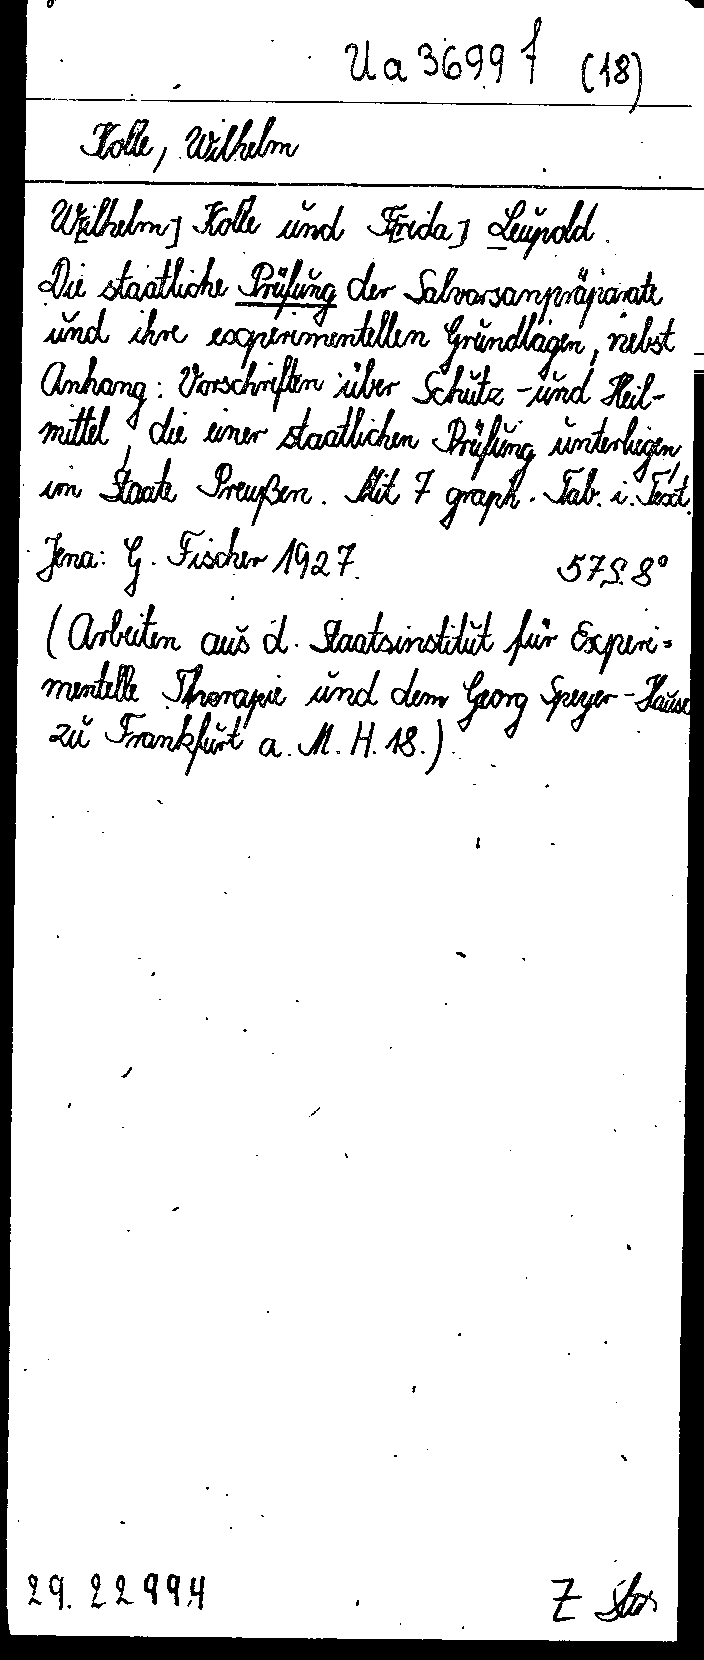 Ua 3699 f (18)
Kolle, Wilhelm
W[ilhelm] Kolle und F[rida] Leupold.
Die staatliche Prüfung der Salvarsanpräparate
und ihre experimentellen Grundlagen, nebst
Anhang: Vorschriften über Schutz- und Heil-
mittel, die einer staatlichen Prüfung unterliegen,
im Staate Preußen. Mit 7 graph. Tab. i. Text.
Jena: G. Fischer 1927. 57 S. 8°
(Arbeiten aus d. Staatsinstitut für Experi=
mentelle Therapie und dem Georg Speyer-Hause
zu Frankfurt a. M. H. 18.)
29. 22994 Z